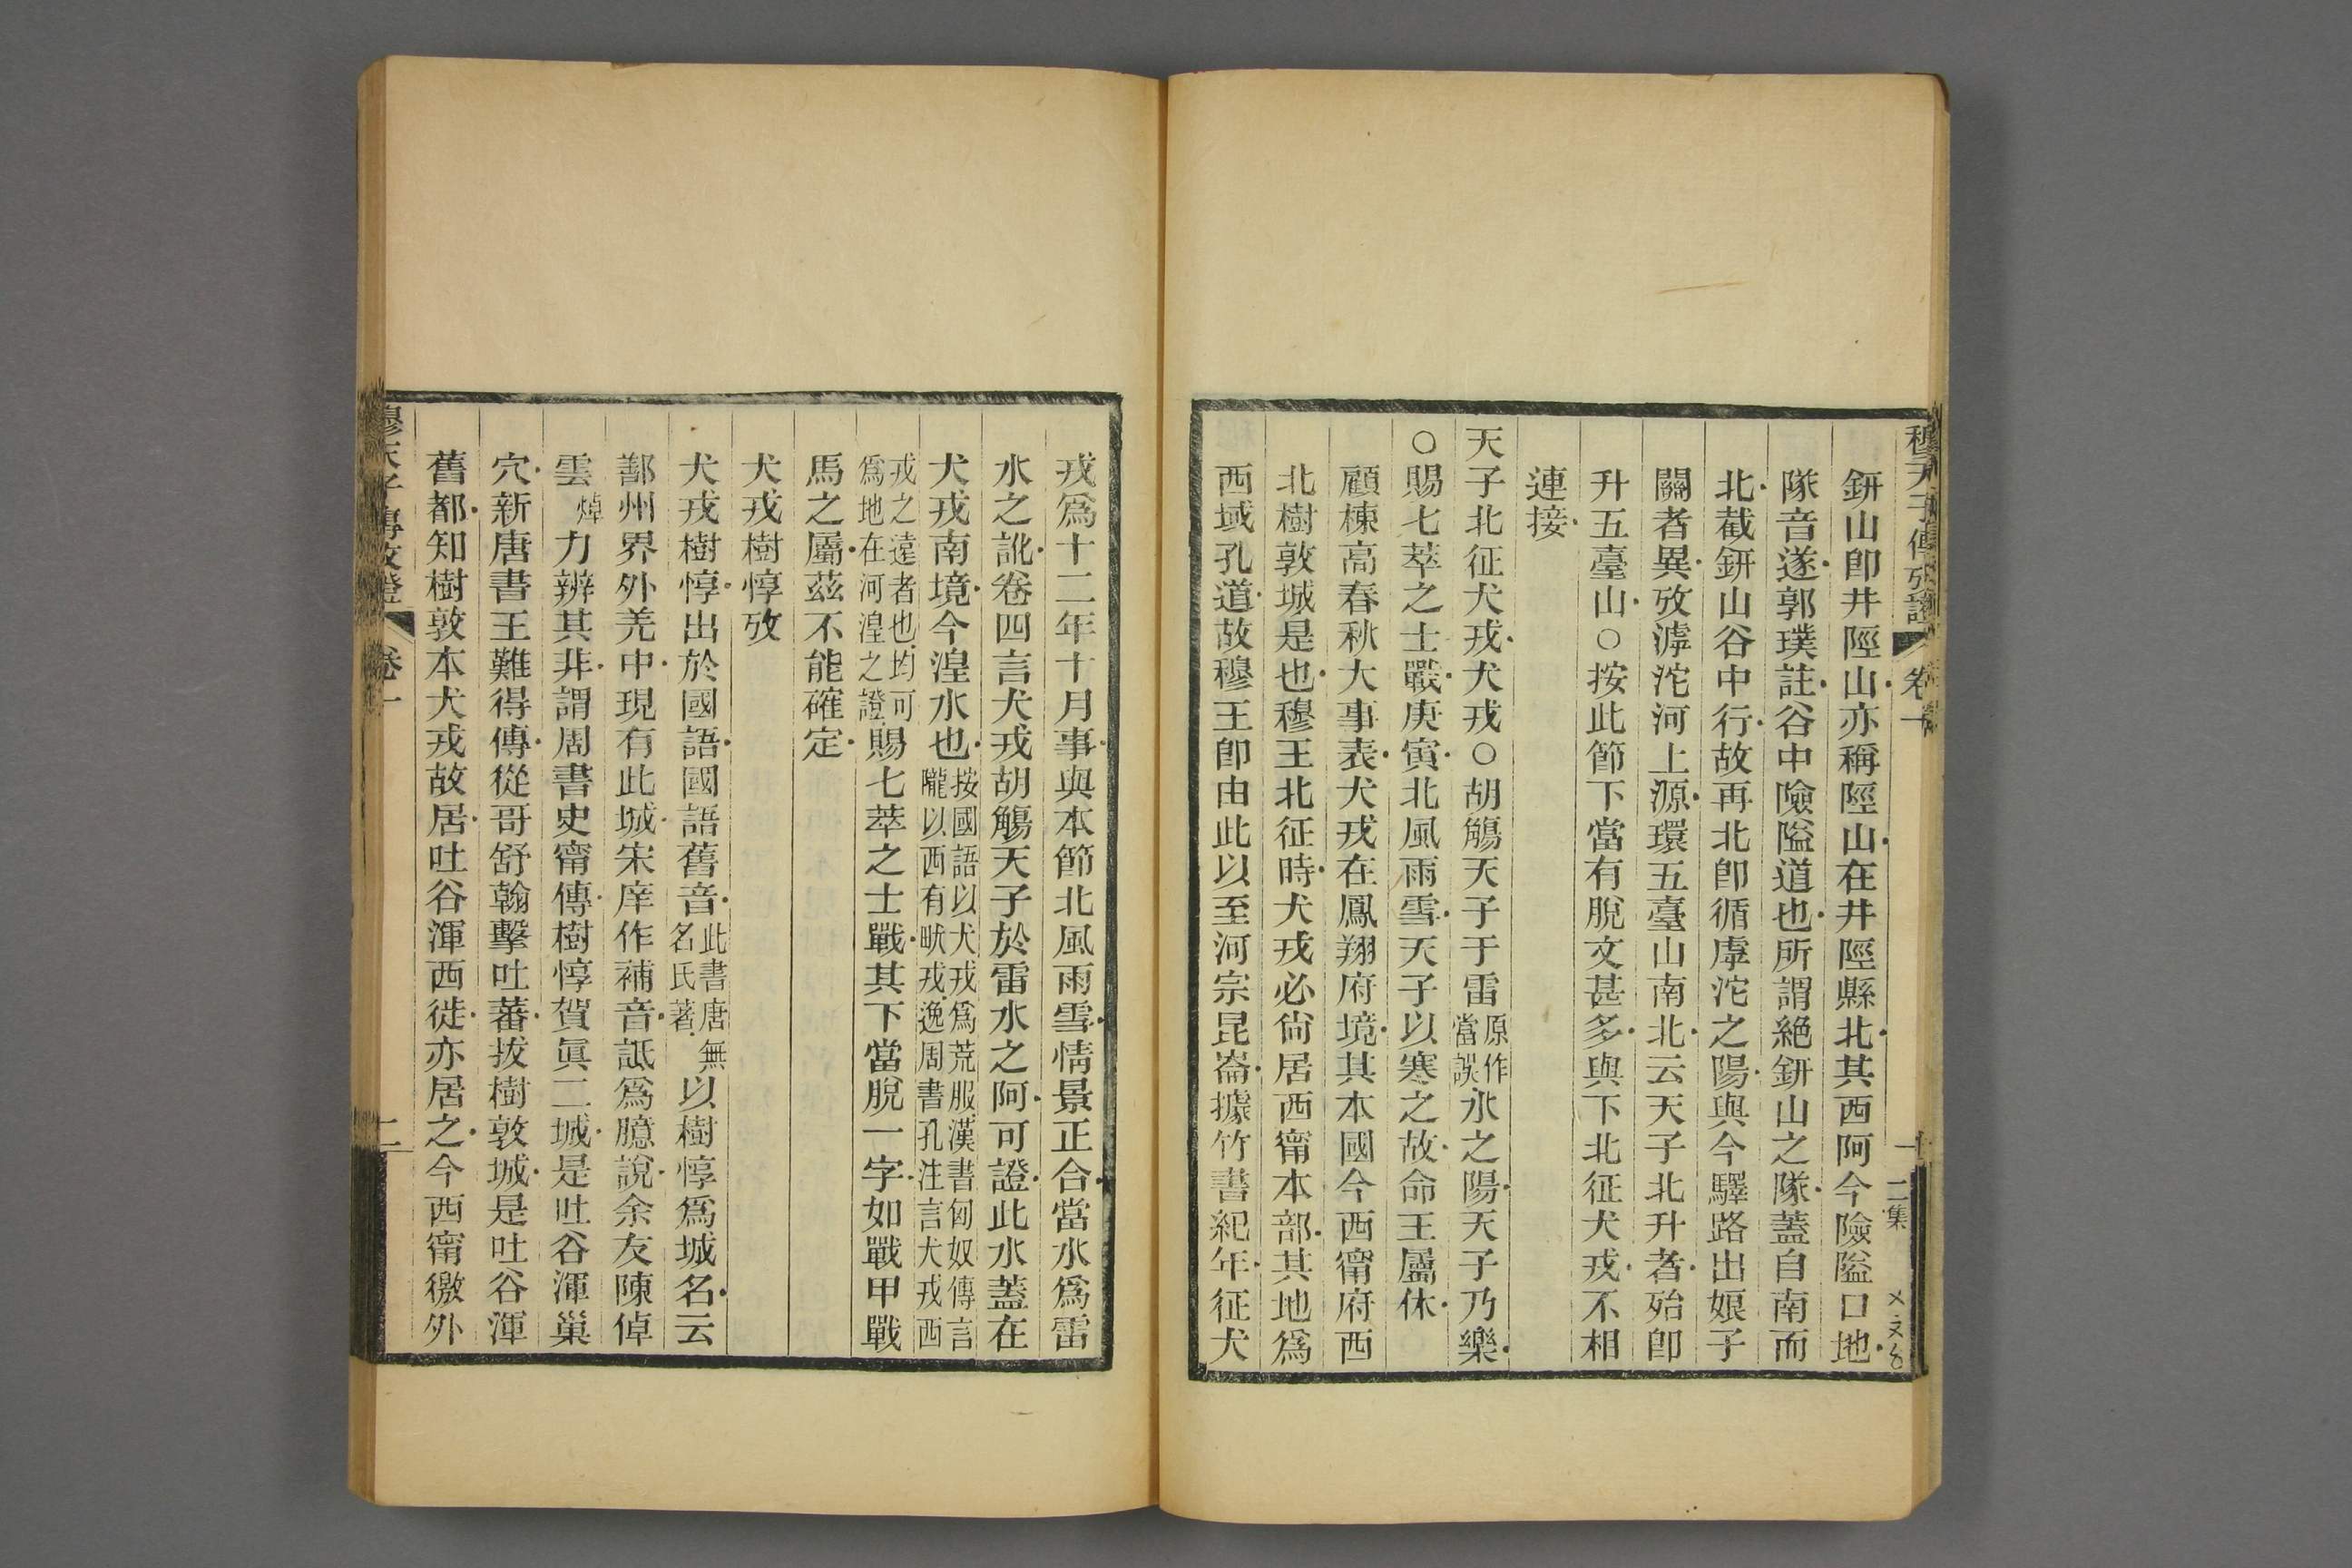 穆天子傳攷證 卷一 十 二集
鈃山卽井陘山亦稱陘山在井陘縣北其西阿今險隘口地
隊音遂郭璞註谷中險隘道也所謂絕鈃山之隊蓋自南而
北截鈃山谷中行故再北卽循虖沱之陽與今驛路出娘子
關者異攷滹沱河上源環五臺山南北云天子北升者殆卽
升五臺山○按此節下當有脫文甚多與下北征犬戎不相
連接
天子北征犬戎犬戎○胡觴天子于雷原作當誤水之陽天子乃樂
○賜七萃之士戰庚寅北風雨雪天子以寒之故命王屬休
顧棟高春秋大事表犬戎在鳳翔府境其本國今西甯府西
北樹敦城是也穆王北征時犬戎必尙居西甯本部其地爲
西域孔道故穆王卽由此以至河宗昆崙據竹書紀年征犬
戎爲十二年十月事與本節北風雨雪情景正合當水爲雷
水之訛卷四言犬戎胡觴天子於雷水之阿可證此水蓋在
犬戎南境今湟水也按國語以犬戎爲荒服漢書匈奴傳言隴以西有畎戎逸周書孔注言犬戎西
戎之遠者也均可爲地在河湟之證賜七萃之士戰其下當脫一字如戰甲戰
馬之屬茲不能確定
犬戎樹惇攷
犬戎樹惇出於國語國語舊音此書唐無名氏著以樹惇爲城名云
鄯州界外羌中現有此城宋庠作補音詆爲臆說余友陳倬
雲焯力辨其非謂周書史甯傳樹惇賀眞二城是吐谷渾巢
穴新唐書王難得傳從哥舒翰擊吐蕃拔樹敦城是吐谷渾
舊都知樹敦本犬戎故居吐谷渾西徙亦居之今西甯徼外
穆天子傳攷證 卷一 二